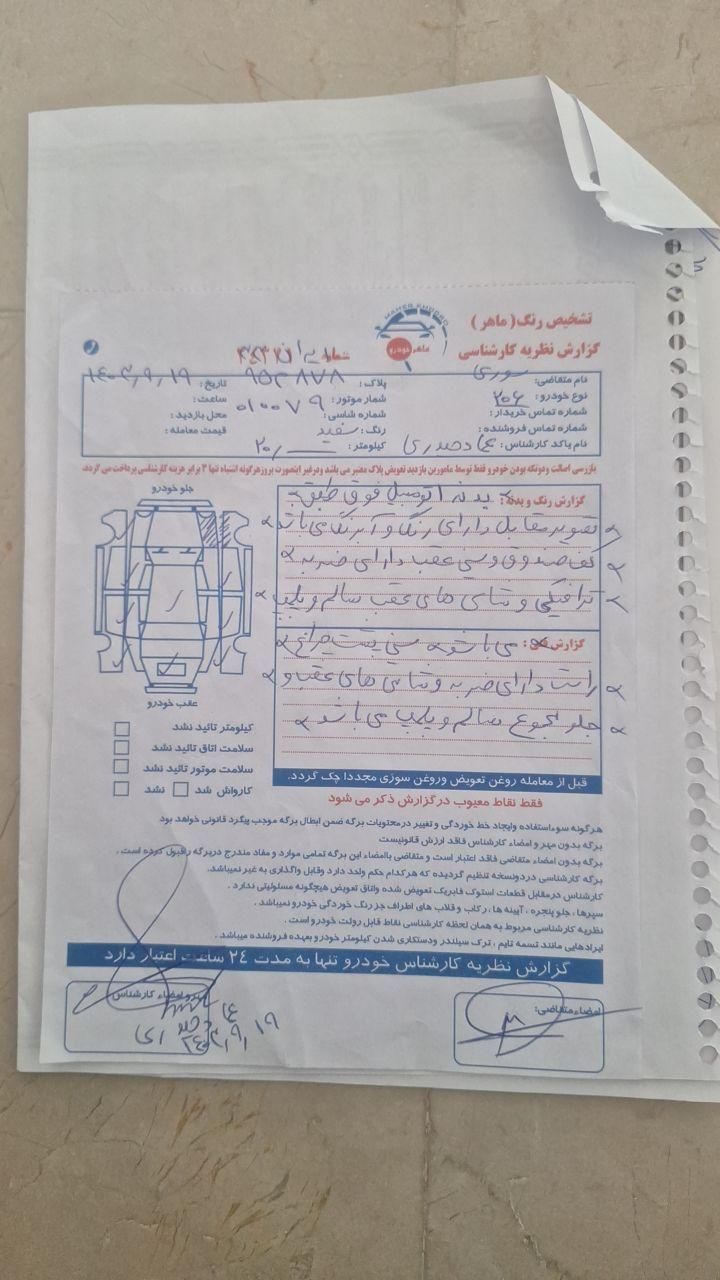 تشخیص رنگ ( ماهر )
MAHER KHODRO
ماهر خودرو
گزارش نظریه کارشناسی
شماره
نام متقاضی: سوری
پلاک: ۹۵۲۸۷۸
تاریخ: ۱۴۰۲,۹,۱۹
نوع خودرو: ۲۰۶
شماره موتور: ۰۱۰۰۷۹
ساعت:
شماره تماس خریدار:
شماره شاسی:
محل بازدید:
شماره تماس فروشنده:
رنگ: سفید
قیمت معامله:
نام یاکد کارشناس:
کیلومتر:
بازرسی اصالت ودوتکه بودن خودرو فقط توسط مامورین بازدید تعویض پلاک معتبر می باشد ودرغیر اینصورت بروزهرگونه اشتباه تنها ۳ برابر هزینه کارشناسی پرداخت می گردد.
جلو خودرو
گزارش رنگ و بدنه: بدنه اتومبیل فوق طبق
تصویر مقابل دارای رنگ و آبرنگ می باشد
کف صندوق و سینی عقب دارای ضربه
ترافیکی و شاسی های عقب سالم و پلمپ
گزارش فنی: می باشد سینی پشت چراغ
راست دارای ضربه و شاسی های عقب و
جلو مجموع سالم و پلمپ می باشد
عقب خودرو
کیلومتر تائید نشد
سلامت اتاق تائید نشد
سلامت موتور تائید نشد
کارواش شد نشد
قبل از معامله روغن تعویض وروغن سوزی مجددا چک گردد.
فقط نقاط معیوب در گزارش ذکر می شود
هرگونه سوءاستفاده وایجاد خط خوردگی و تغییر در محتویات برگه ضمن ابطال برگه موجب پیگرد قانونی خواهد بود
برگه بدون مهر و امضاء کارشناس فاقد ارزش قانونیست
برگه بدون امضاء متقاضی فاقد اعتبار است و متقاضی باامضاء این برگه تمامی موارد و مفاد مندرج دربرگه راقبول کرده است .
برگه کارشناسی دردونسخه تنظیم گردیده که هرکدام حکم واحد دارد وقابل واگذاری به غیر نمیباشد.
کارشناس درمقابل قطعات استوک فابریک تعویض شده واتاق تعویض هیچگونه مسئولیتی ندارد .
سپرها ، جلو پنجره ، آیینه ها ، رکاب و قلاب های اطراف جز رنگ خوردگی خودرو نمیباشد .
نظریه کارشناسی مربوط به همان لحظه کارشناسی نقاط قابل رولت خودرو است .
ایرادهایی مانند تسمه تایم ، ترک سیلندر ودستکاری شدن کیلومتر خودرو بعهده فروشنده میباشد .
گزارش نظریه کارشناس خودرو تنها به مدت ۲۴ ساعت اعتبار دارد
امضاء متقاضی:
مهر و امضاء کارشناس: